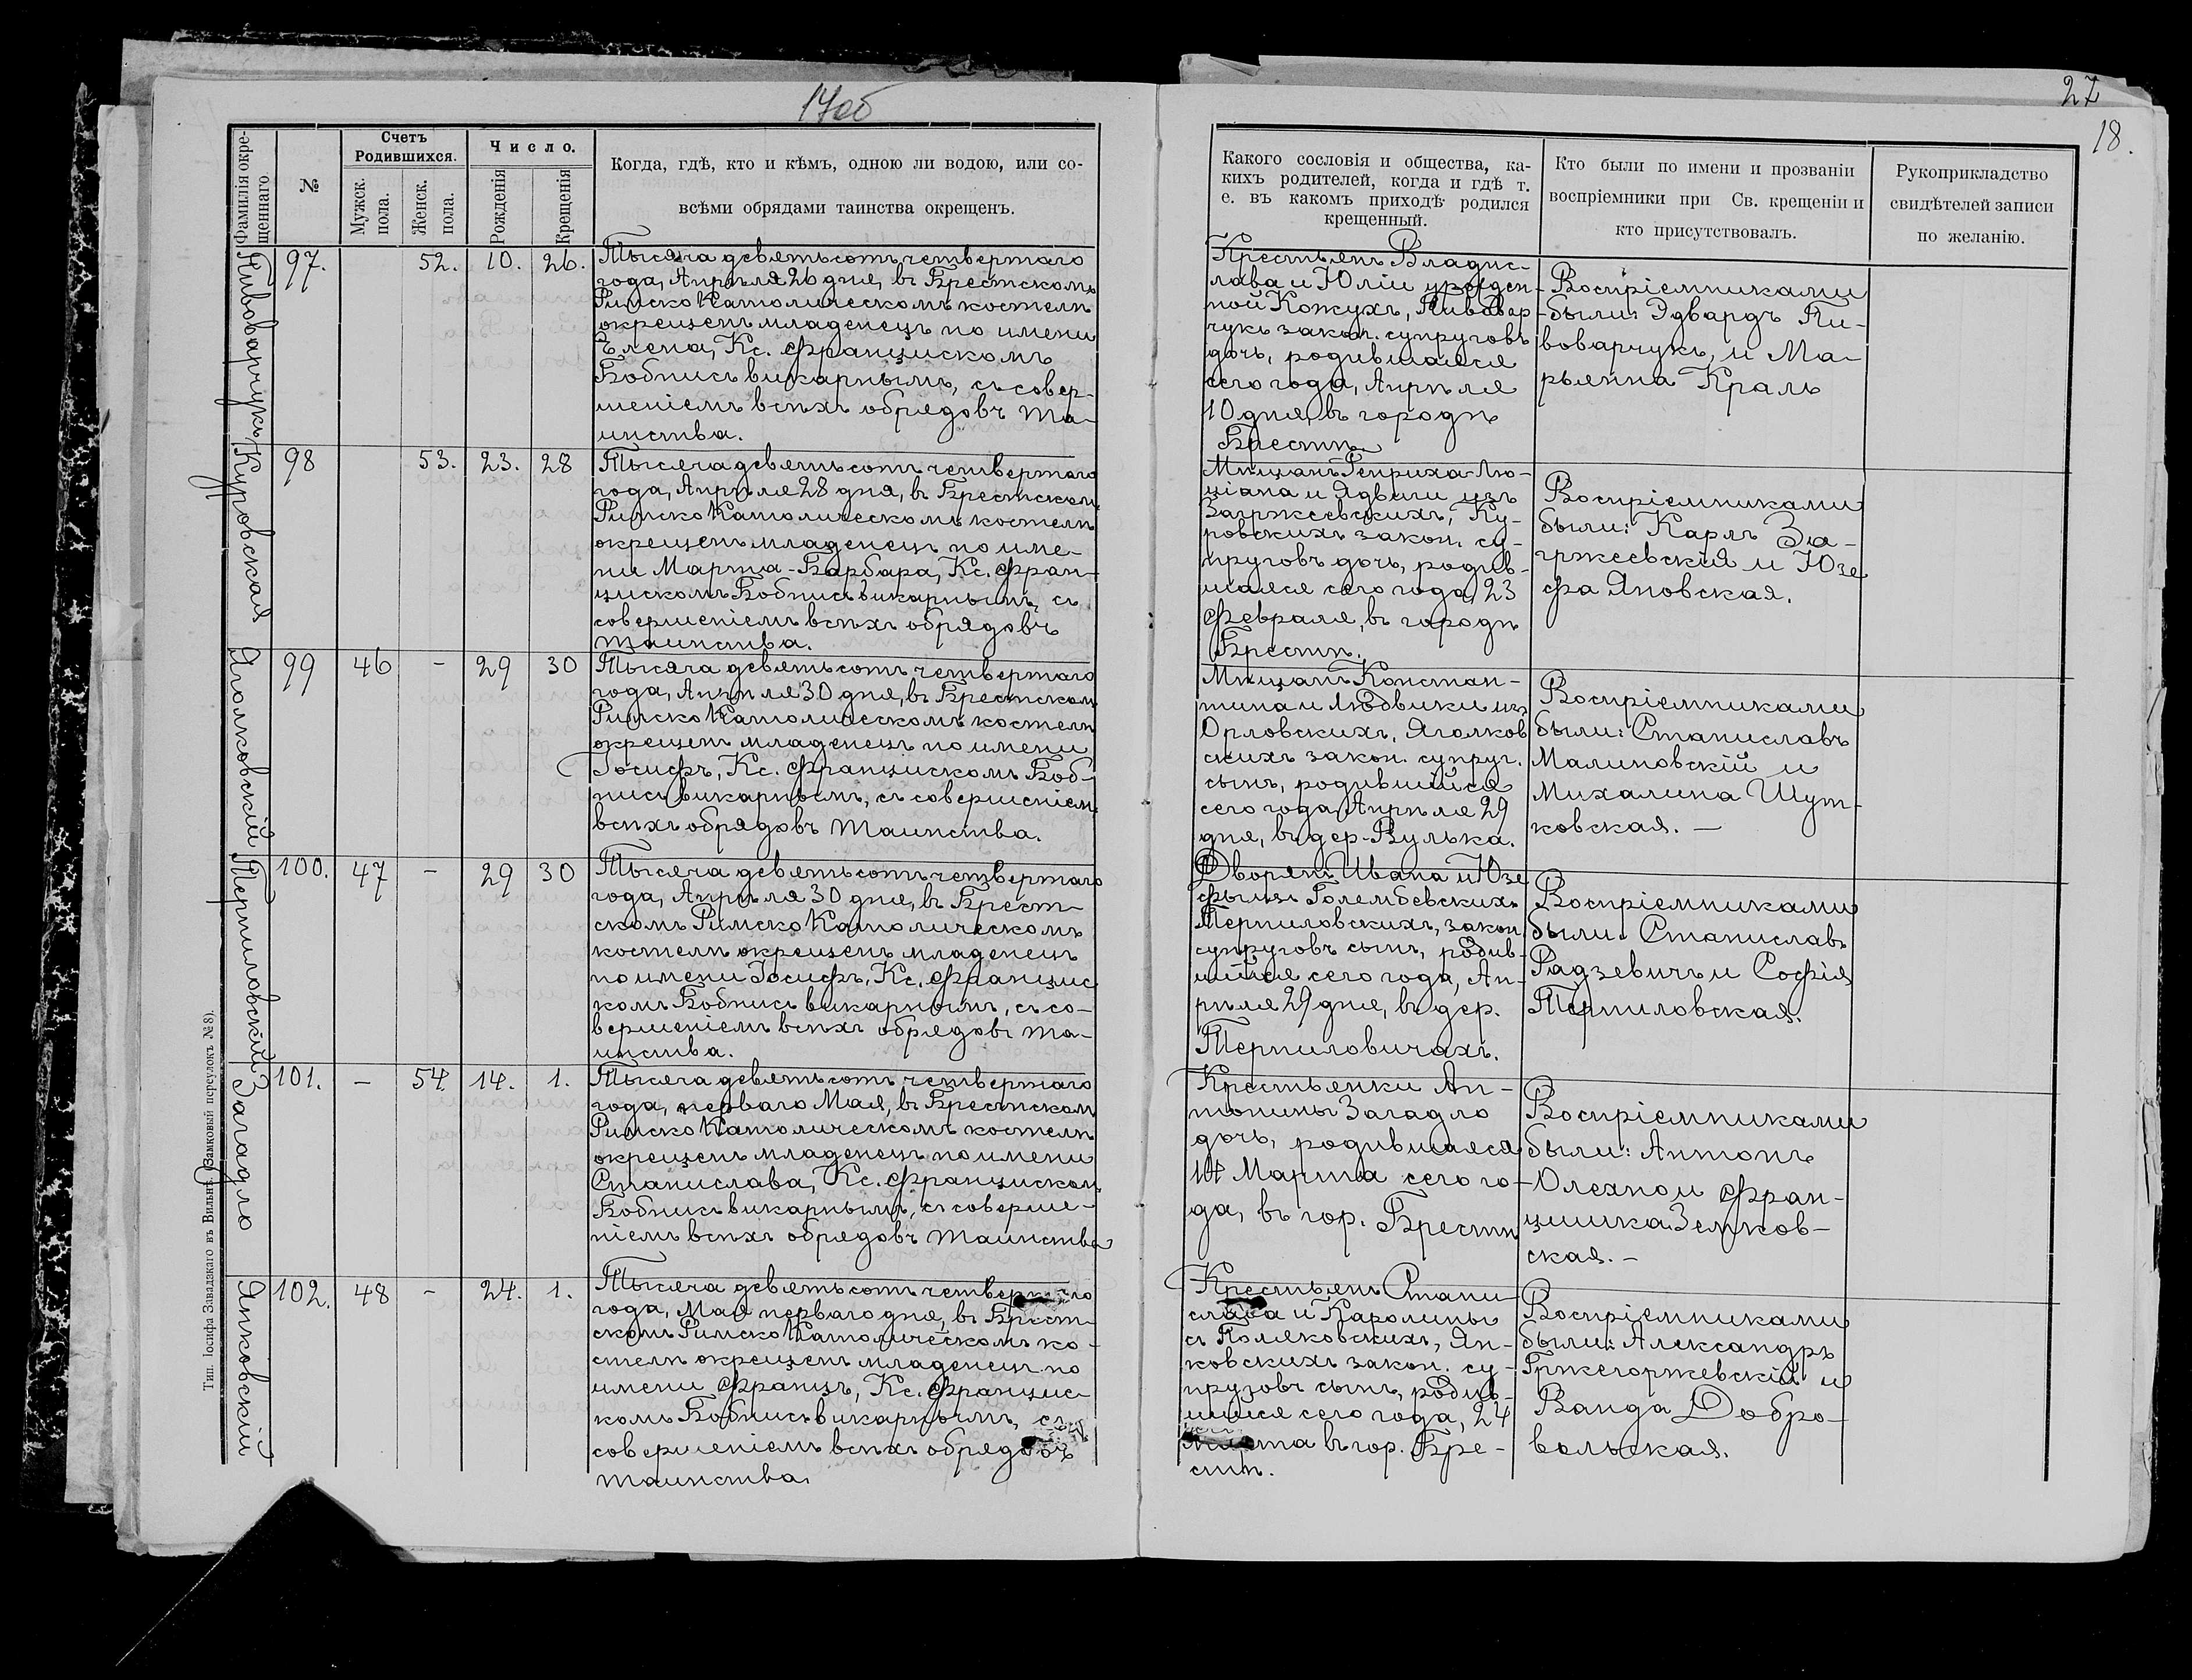 17об
27
18.
Фамилія окре-
щеннаго
№
Счетъ
Родившихся.
Мужск.
пола.
Женск.
пола.
Число.
Рожденія
Крещенія
Когда, гдѣ, кто и кѣмъ, одною ли водою, или со-
всѣми обрядами таинства окрещенъ.
Какого сословія и общества, ка-
кихъ родителей, когда и гдѣ т.
е. въ какомъ приходѣ родился
крещенный.
Кто были по имени и прозванію
воспріемники при Св. крещеніи и
кто присутствовалъ.
Рукоприкладство
свидѣтелей записи
по желанію.
Пивоварчукъ
97.
52.
10.
26.
Тысяча девятьсотъ четвертаго
года, Апрѣля 26 дня, въ Брестскомъ
Римско Католическомъ костелѣ
окрещенъ младенецъ по имени
Елена, Кс. Францискомъ
Бобнисъ викарнымъ, съ совер-
шеніемъ всѣхъ обрядовъ та-
инства.
Крестьянъ Владис-
лава и Юліи урожден-
ной Кожухъ, Пивовар-
чукъ закон. супруговъ
дочь, родившаяся
сего года, Апрѣля
10 дня, въ городѣ
Брестѣ.
Воспріемниками
были: Эдвардъ Пи-
воварчукъ, и Ма-
рьянна Краль
Куровская
98
53.
23.
28
Тысяча девятьсотъ четвертаго
года, Апрѣля 28 дня, въ Брестском
Римско Католическомъ костелѣ
окрещенъ младенецъ по име-
ни Марта-Барбара, Кс. Фран-
цискомъ Бобнисъ викарнымъ, съ
совершеніемъ всѣхъ обрядовъ
таинства.
Мѣщанъ Генриха-Лю-
ціана и Ядвиги изъ
Загржеевскихъ, Ку-
ровскихъ закон. су-
пруговъ дочь, родив-
шаяся сего года, 23
Февраля, въ городѣ
Брестѣ.
Воспріемниками
были: Карлъ За-
гржеевскій и Юзе
фа Яновская.
Яголковскій
99
46
-
29
30
Тысяча девятьсотъ четвертаго
года, Апрѣля 30 дня, въ Брестском
Римско Католическомъ костелѣ
окрещенъ младенецъ по имени
Іосифъ, Кс. Францискомъ Боб-
нисъ викарнымъ, съ совершеніем
всѣхъ обрядовъ таинства.
Мѣщанъ Констан-
тина и Людвики изъ
Орловскихъ, Яголков
скихъ закон. супруг.
сынъ, родившійся
сего года, Апрѣля 29
дня, въ дер. Вулька.
Воспріемниками
были: Станиславъ
Малиновскій и
Михалина Шут-
ковская. —
Терпиловскій
100.
47
-
29
30
Тысяча девятьсотъ четвертаго
года, Апрѣля 30 дня, въ Брест-
скомъ Римско Католическомъ
костелѣ окрещенъ младенецъ
по имени Іосифъ, Кс. Францис
комъ Бобнисъ викарнымъ, съ со-
вершеніемъ всѣхъ обрядовъ та-
инства.
Дворянъ Ивана и Юзе
фы изъ Голембевскихъ
Терпиловскихъ, закон
супруговъ сынъ, родив-
шійся сего года, Ап-
рѣля 29 дня, въ дер.
Терпиловичахъ.
Воспріемниками
были: Станиславъ
Радзевичъ и Софія
Терпиловская.
Загадло
101.
-
54
14.
1.
Тысяча девятьсотъ четвертаго
года, перваго Мая, въ Брестском
Римско Католическомъ костелѣ
окрещенъ младенецъ по имени
Станислава, Кс. Францискомъ
Бобнисъ викарнымъ, съ соверше-
ніемъ всѣхъ обрядовъ таинства
Крестьянки Ан-
тонины Загадло
дочь, родившаяся
14 Марта сего го-
да, въ гор. Брестѣ
Воспріемниками
были: Антонъ
Олехно и Фран-
цишка Земков-
ская. -
Янковскій
102.
48
-
24.
1.
Тысяча девятьсотъ четвертаго
года, Мая перваго дня, въ Брест-
скомъ Римско Католическомъ ко-
стелѣ окрещенъ младенецъ по
имени Францъ, Кс. Францис-
комъ Бобнисъ викарнымъ, съ
совершеніемъ всѣхъ обрядовъ
таинства.
Крестьянъ Стани
слава и Каролины
съ Поляковскихъ, Ян-
ковскихъ закон. су-
пруговъ сынъ, родив-
шійся сего года, 24
Марта въ гор. Бре-
стѣ.
Воспріемниками
были: Александръ
Гржегоржевскій и
Ванда Добро-
вольская.
Тип. Іосифа Завадзкаго въ Вильнѣ (Замковый переулокъ № 8).